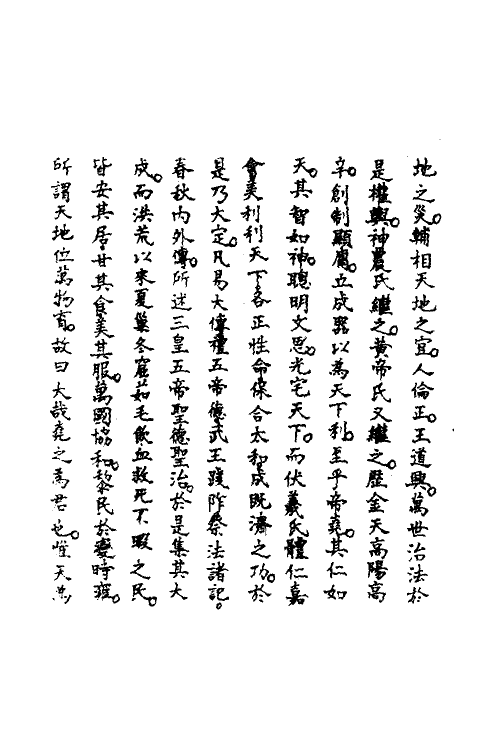 地之災。輔相天地之宜。人倫正。王道興。萬世治法於
是權輿。神農氏繼之。黃帝氏又繼之。歷金天高陽高
辛。創制顯庸。立成器以為天下利。至乎帝堯。其仁如
天。其智如神。聰明文思。光宅天下。而伏羲氏體仁嘉
會美利利天下。各正性命。保合太和。成既濟之功。於
是乃大定。凡易大傳禮五帝德武王踐阼祭法諸記。
春秋內外傳。所述三皇五帝聖德聖治。於是集其大
成。而洪荒以來夏巢冬窟茹毛飲血救死不暇之民。
皆安其居。甘其食。美其服。萬國協和。黎民於變時雍。
所謂天地位萬物育。故曰大哉堯之為君也。惟天為